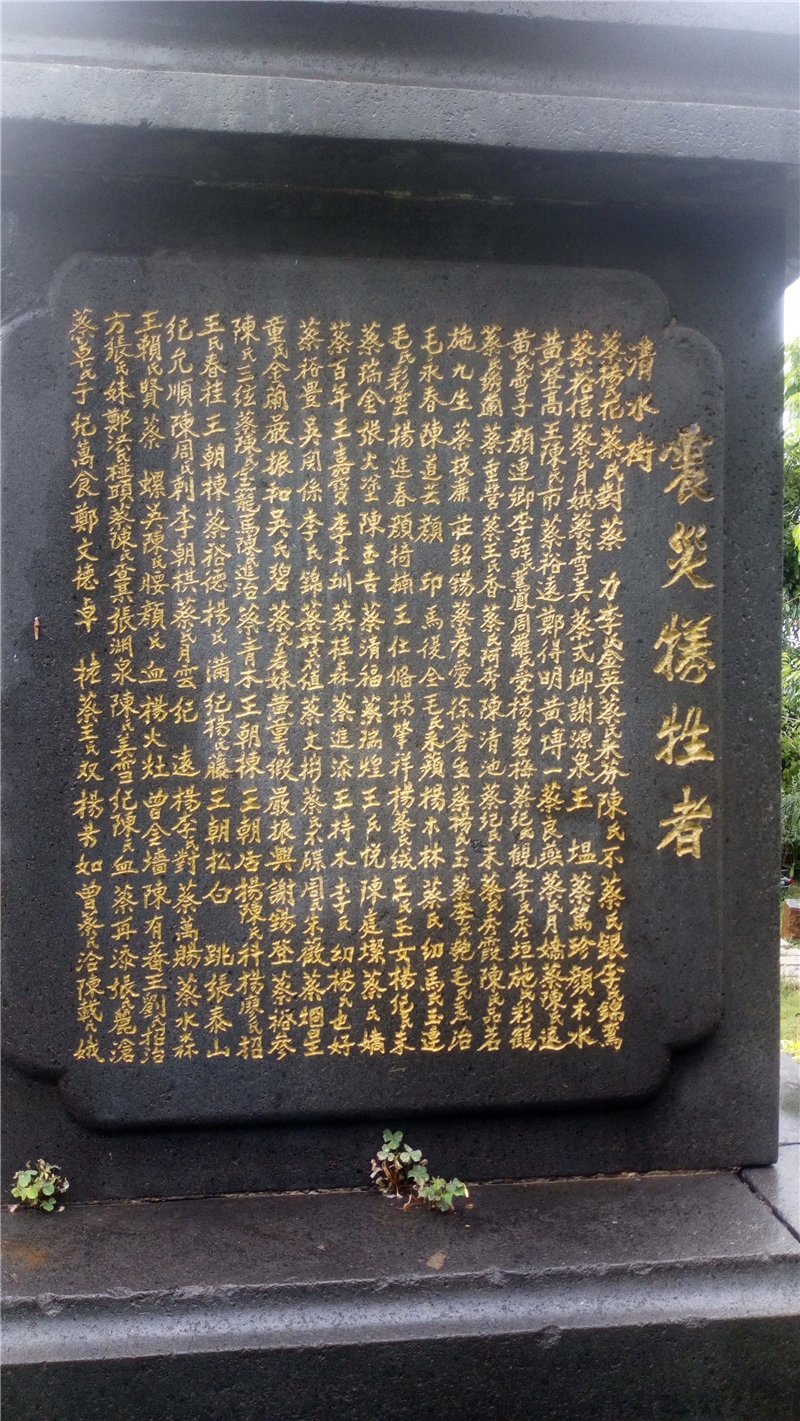 震災犧牲者
清水街
蔡楊花 蔡氏對 蔡 力 李氏金英 蔡氏來芬 陳氏不 蔡氏銀 李氏錦鴛
蔡裕信 蔡氏月娥 蔡氏雪美 蔡式卿 謝源泉 王 塭 蔡篤珍 顏木水
黃登高 王陳氏市 蔡裕遠 鄭得明 黃博一 蔡良燕 蔡氏月嬌 蔡陳氏遠
黃氏雪子 顏連卿 鳳 周羅氏愛 楊氏碧梅 蔡紀氏觀 李氏彦垣 施氏彩鶴
蔡氏綉蘭 蔡金營 蔡王氏香 蔡氏阿秀 陳清池 蔡紀氏末 蔡氏彦霞 陳氏品若
施九生 蔡我廉 莊銘錫 蔡晨愛 徐蒼生 蔡楊氏玉 蔡李氏匏 毛氏孟治
毛永春 陳道云 顏 印 馬俊全 毛氏來頭 楊木林 蔡氏幼 馬氏玉連
毛氏彩雲 楊進春 顏椅楠 王仕脩 楊肇祥 楊蔡氏絨 王氏玉女 楊紀氏末
蔡瑞金 張火塗 陳丕吉 蔡清福 蔡瑞煌 王氏悅 陳庭燦 蔡氏嬌
蔡百年 王嘉寶 李木圳 蔡桂森 蔡進添 王持木 李氏幼 楊氏也好
蔡裕豊 吳周係 李氏錦 蔡文樹 蔡氏不碟 周氏朱歡 蔡烟星
童氏金蘭 嚴振和 吳氏碧 蔡氏若妹 黃童氏緞 嚴振興 謝錫登 蔡裕參
陳氏三絃 蔡陳氏玉 龍馬 陳進治 蔡青木 王朝棟 王朝店 楊陳氏科 楊廖氏招
王氏春桂 王朝棟 蔡裕德 楊氏滿 紀楊氏藤 王朝松 白 跳 張泰山
紀允順 陳周氏刺 李朝棋 蔡氏月雲 紀 遠 楊李氏對 蔡萬賜 蔡水森
王賴氏賢 蔡 螺 吳陳氏腰 顏氏血 楊火灶 曾金墻 陳有蕃 王劉氏指治
方張氏妹 鄭江氏種頭 蔡陳氏査某 張淵泉 陳氏美雪 紀陳氏血 蔡再添 張麗滄
蔡卓氏于 紀萬食 鄭文憶 卓 桃 蔡王氏双 楊昔如 曾蔡氏洽 陳戴氏娥